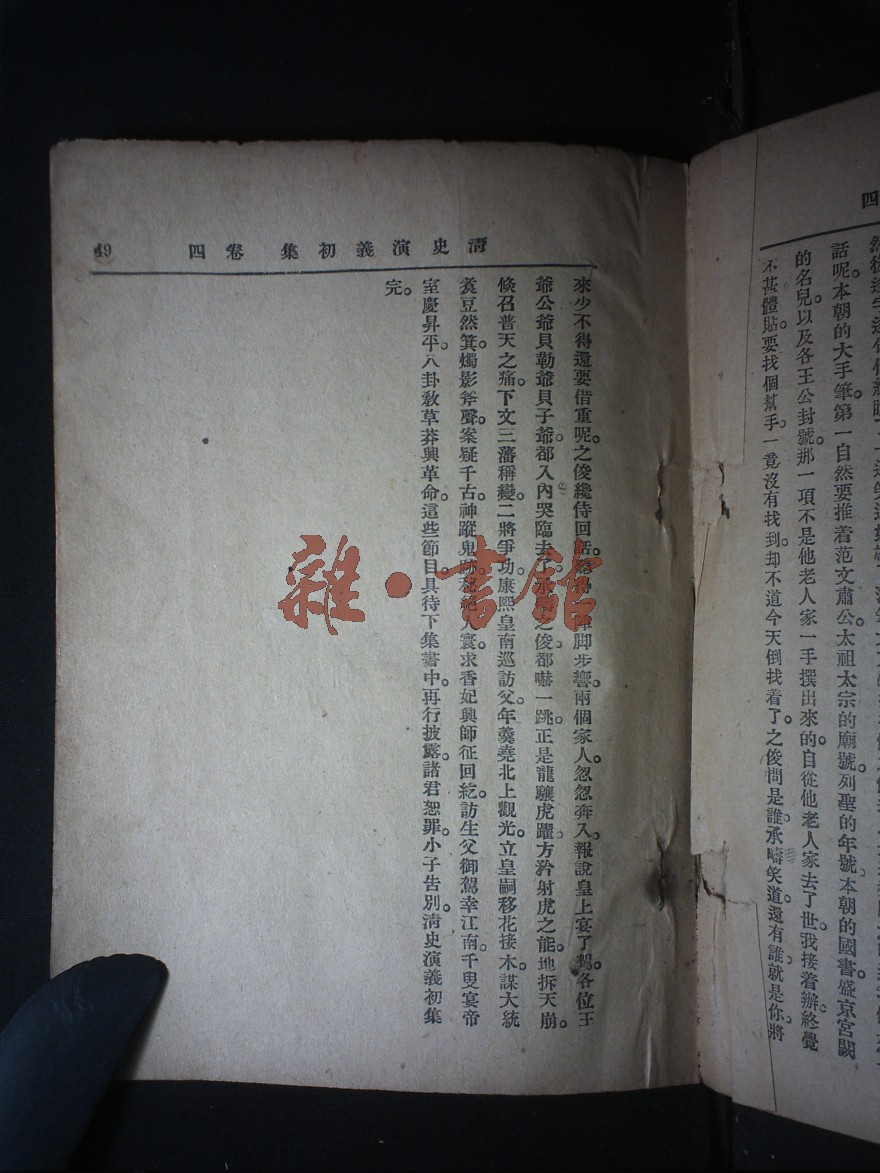 四
話呢。本朝的大手筆。第一自然要推着范文肅公。太祖太宗的廟號。列聖的年號。本朝的國書。盛京宮闕
的名兒。以及各王公封號。那一項不是他老人家一手撰出來的。自從他老人家去了世。我接着辦。終覺
不甚體貼。要找個幫手。一竟沒有找到。却不道今天倒找着了。之俊問是誰。承疇笑道還有誰就是你。將
清史演義初集 卷四 49
來少不得還要借重呢。之俊纔待回話。陣脚步響。兩個家人。忽忽奔入。報說皇上宴了駕。各位王
爺公爺貝勒爺貝子爺。都入內哭臨去了。之俊都嚇一跳。正是龍驤虎躍。方矜射虎之能。地拆天崩。
倏召普天之痛。下文三藩稱變。二將爭功。康熙皇南巡訪父。年羹堯北上觀光。立皇嗣移花接木。謀大統
煑豆然箕。燭影斧聲。案疑千古。神蹤鬼跡。秘絕人寰。求香妃興師征回紇。訪生父御駕幸江南。千叟宴帝
室慶昇平。八卦教草莽興革命。這些節目。具待下集書中。再行披露。諸君恕罪。小子告別。清史演義初集
完。
雜·書館